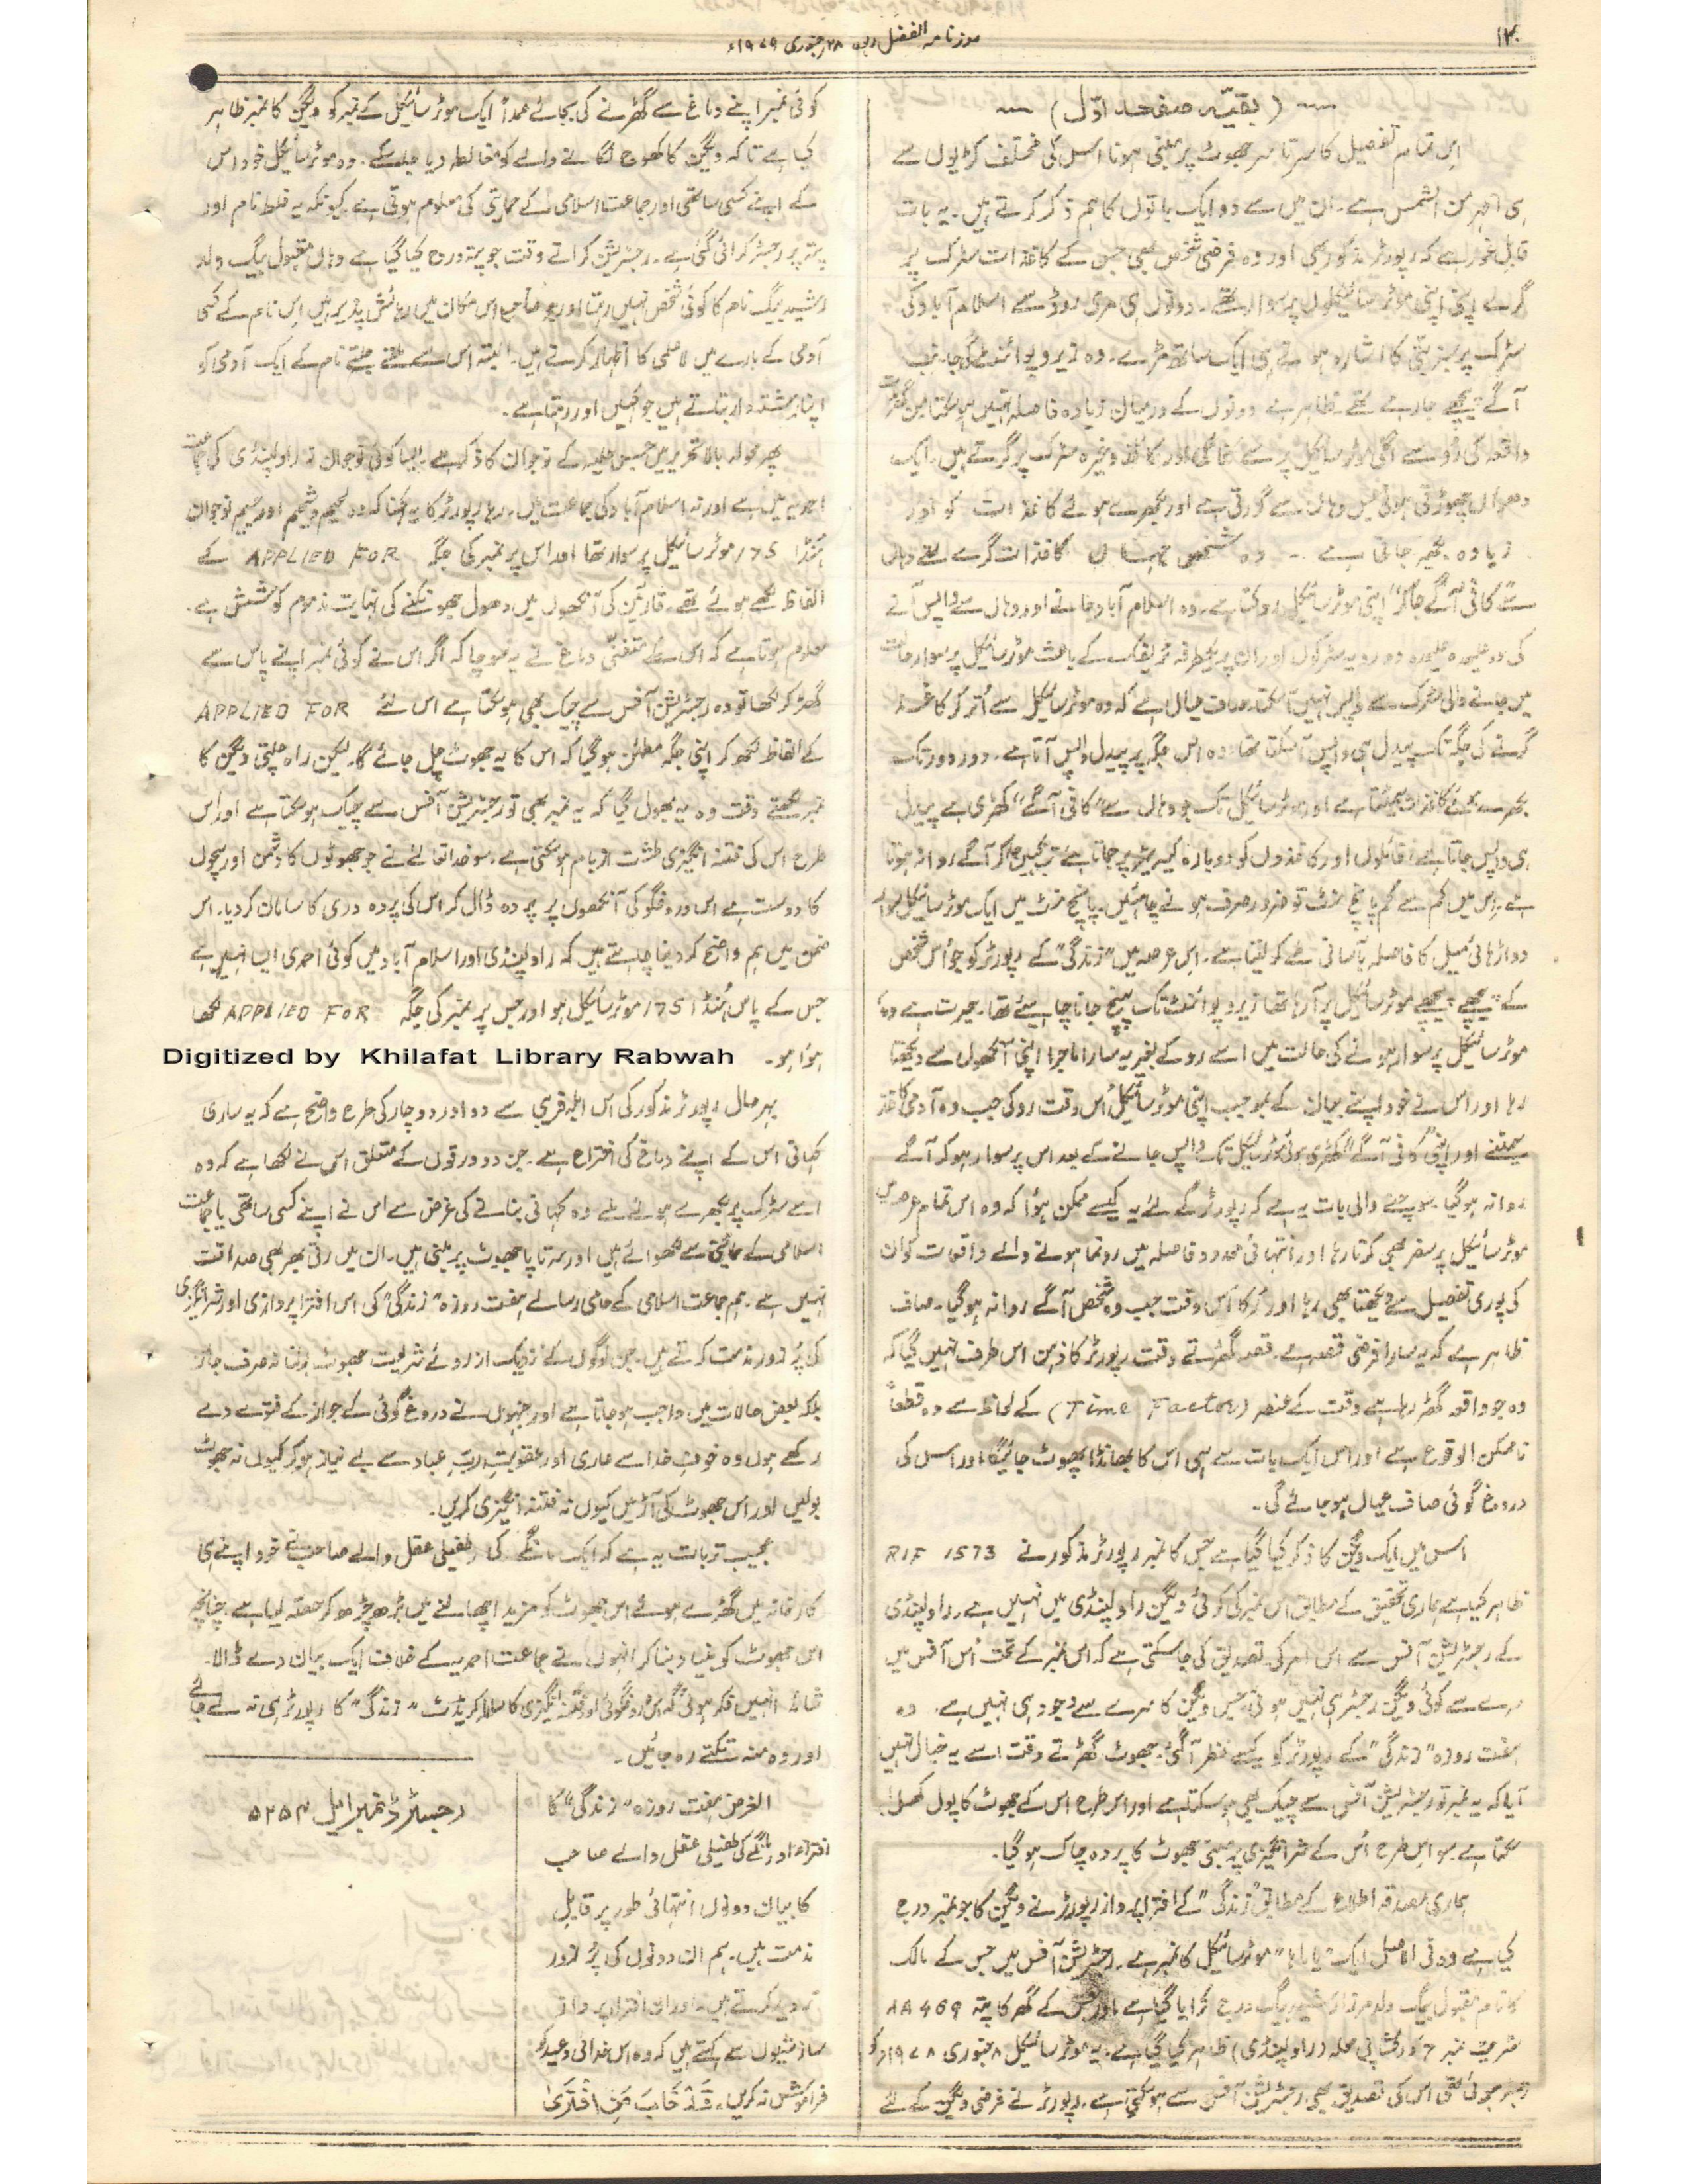 ۱۲
روزنامہ الفضل ربوہ ۲۸ جنوری ۱۹۷۹ء
(بقیہ صفحہ اوّل)
اس تمام تفصیل کا سرتاسر جھوٹ پر مبنی ہونا اس کی مختلف کڑیوں سے
ہی اظہر من الشمس ہے۔ ان میں سے دو ایک باتوں کا ہم ذکر کرتے ہیں۔ یہ بات
قابلِ غور ہے کہ رپورٹر مذکور بھی اور وہ فرضی شخص بھی جس کے کاغذات سڑک پر
گرے اپنی اپنی موٹر سائیکلوں پر سوار تھے۔ دونوں ہی مری روڈ سے اسلام آباد کی
سڑک پر سبز بتی کا اشارہ ہوتے ہی ایک ساتھ مڑے۔ وہ زیرو پوائنٹ کی جانب
آگے پیچھے جا رہے تھے ظاہر ہے دونوں کے درمیان زیادہ فاصلہ نہیں ہو سکتا من گھڑت
واقعہ کی رُو سے اگلی موٹر سائیکل پر سے فائلیں اور کاغذ وغیرہ سڑک پر گرتے ہیں۔ ایک
دھواں چھوڑتی ہوئی بس وہاں سے گزرتی ہے اور بکھرے ہوئے کاغذات کو اور
زیادہ بکھیر جاتی ہے ۔۔ وہ شخص جہاں کاغذات گرے تھے وہاں
سے "کافی آگے جا کر" اپنی موٹر سائیکل روکتا ہے۔ وہ اسلام آباد جانے اور وہاں سے واپس آنے
کی دو علیحدہ علیحدہ دو رویہ سڑکوں اور ان پر یکطرفہ ٹریفک کے باعث موٹر سائیکل پر سوار حالت
میں جانے والی سڑک سے واپس نہیں آ سکتا۔ صاف عیاں ہے کہ وہ موٹر سائیکل سے اُتر کر کاغذ
گرنے کی جگہ تک پیدل ہی واپس آ سکتا تھا۔ وہ اس جگہ پر پیدل واپس آتا ہے۔ دور دور تک
بکھرے ہوئے کاغذات سمیٹتا ہے اور موٹر سائیکل تک جو وہاں سے "کافی آگے" کھڑی ہے پیدل
ہی واپس جاتا ہے، فائلوں اور کاغذوں کو دوبارہ کیریئر پر جماتا ہے تب کہیں جا کر آگے روانہ ہوتا
ہے۔ اس میں کم سے کم پانچ منٹ تو ضرور صرف ہونے چاہئیں۔ پانچ منٹ میں ایک موٹر سائیکل سوار
دو اڑھائی میل کا فاصلہ بآسانی طے کر لیتا ہے۔ اس عرصہ میں "زندگی" کے رپورٹر کو جو اُس شخص
کے پیچھے پیچھے موٹر سائیکل پر آ رہا تھا زیرو پوائنٹ تک پہنچ جانا چاہیئے تھا۔ حیرت ہے وہ
موٹر سائیکل پر سوار ہونے کی حالت میں اسے روکے بغیر یہ سارا ماجرا اپنی آنکھوں سے دیکھتا
رہا اور اس نے خود اپنے بیان کے بموجب اپنی موٹر سائیکل اُس وقت روکی جب وہ آدمی کاغذ
سمیٹنے اور اپنی "کافی آگے" کھڑی ہوئی موٹر سائیکل تک واپس جانے کے بعد اس پر سوار ہو کر آگے
روانہ ہو گیا۔ سوچنے والی بات یہ ہے کہ رپورٹر کے لئے یہ کیسے ممکن ہوا کہ وہ اس تمام عرصہ میں
موٹر سائیکل پر سفر بھی کرتا رہا اور انتہائی محدود فاصلہ میں رونما ہونے والے واقعات کو ان
کی پوری تفصیل سے دیکھتا بھی رہا اور رُکا اُس وقت جب وہ شخص آگے روانہ ہو گیا۔ صاف
ظاہر ہے کہ یہ سارا فرضی قصہ ہے۔ قصہ گھڑتے وقت رپورٹر کا ذہن اس طرف نہیں گیا کہ
وہ جو واقعہ گھڑ رہا ہے وقت کے عنصر (Time Factor) کے لحاظ سے وہ قطعاً
ناممکن الوقوع ہے اور اس ایک بات سے ہی اس کا بھانڈا پھوٹ جائیگا اور اس کی
دروغ گوئی صاف عیاں ہو جائے گی۔
اس میں ایک ویگن کا ذکر کیا گیا ہے جس کا نمبر رپورٹر مذکور نے RIF 1573
ظاہر کیا ہے ہماری تحقیق کے مطابق اس نمبر کی کوئی ویگن راولپنڈی میں نہیں ہے۔ راولپنڈی
کے رجسٹریشن آفس سے اس امر کی تصدیق کی جا سکتی ہے کہ اس نمبر کے تحت اُس آفس میں
سرے سے کوئی ویگن رجسٹر ہی نہیں ہوئی۔ جس ویگن کا سرے سے وجود ہی نہیں ہے وہ
ہفت روزہ "زندگی" کے رپورٹر کو کیسے نظر آ گئی۔ جھوٹ گھڑتے وقت اسے یہ خیال نہیں
آیا کہ یہ نمبر تو رجسٹریشن آفس سے چیک بھی ہو سکتا ہے اور اس طرح اس کے جھوٹ کا پول کھل
سکتا ہے۔ سو اس طرح اُس کے شر انگیزی پر مبنی جھوٹ کا پردہ چاک ہو گیا۔
ہماری مصدقہ اطلاع کے مطابق "زندگی" کے افترا پرداز رپورٹر نے ویگن کا جو نمبر درج
کیا ہے وہ فی الاصل ایک "یاماہا" موٹر سائیکل کا نمبر ہے۔ رجسٹریشن آفس میں جس کے مالک
کا نام مقبول بیگ ولد مرزا رشید بیگ درج کرایا گیا ہے اور جس کے گھر کا پتہ AA 469
سٹریٹ نمبر 7 ورکشاپی محلہ (راولپنڈی) ظاہر کیا گیا ہے۔ یہ موٹر سائیکل ۸ جنوری ۱۹۷۸ء کو
رجسٹر ہوئی تھی اس کی تصدیق بھی رجسٹریشن آفس سے ہو سکتی ہے۔ رپورٹر نے فرضی ویگن کے لئے
کوئی نمبر اپنے دماغ سے گھڑنے کی بجائے عمداً ایک موٹر سائیکل کے نمبر کو ویگن کا نمبر ظاہر
کیا ہے تاکہ ویگن کا کھوج لگانے والے کو مغالطہ دیا جا سکے۔ وہ موٹر سائیکل خود اس
کے اپنے کسی ساتھی اور جماعت اسلامی کے حمایتی کی معلوم ہوتی ہے کیونکہ یہ غلط نام اور
پتہ پر رجسٹر کرائی گئی ہے۔ رجسٹریشن کراتے وقت جو پتہ درج کیا گیا ہے وہاں مقبول بیگ ولد
رشید بیگ نام کا کوئی شخص نہیں رہتا اور جو صاحب اس مکان میں رہائش پذیر ہیں اس نام کے کسی
آدمی کے بارے میں لاعلمی کا اظہار کرتے ہیں۔ البتہ اس سے ملتے جلتے نام کے ایک آدمی کو
اپنا رشتہ دار بتاتے ہیں جو کہیں اور رہتا ہے۔
پھر محولہ بالا تحریر میں جس حلیہ کے نوجوان کا ذکر ہے ایسا کوئی نوجوان نہ راولپنڈی کی جماعت
احمدیہ میں ہے اور نہ اسلام آباد کی جماعت میں۔ رہا رپورٹر کا یہ کہنا کہ وہ لحیم و شحیم اور جسیم نوجوان
ہنڈا 175 موٹر سائیکل پر سوار تھا اور اس پر نمبر کی جگہ APPLIED FOR کے
الفاظ لکھے ہوئے تھے۔ قارئین کی آنکھوں میں دھول جھونکنے کی نہایت مذموم کوشش ہے۔
معلوم ہوتا ہے کہ اس کے متفنی دماغ نے یہ سوچا کہ اگر اس نے کوئی نمبر اپنے پاس سے
گھڑ کر لکھا تو وہ رجسٹریشن آفس سے چیک بھی ہو سکتا ہے اس لئے APPLIED FOR
کے الفاظ لکھ کر اپنی جگہ مطمئن ہو گیا کہ اس کا یہ جھوٹ چل جائے گا۔ لیکن راہ چلتی ویگن کا
نمبر لکھتے وقت وہ یہ بھول گیا کہ یہ نمبر بھی تو رجسٹریشن آفس سے چیک ہو سکتا ہے اور اس
طرح اس کی فتنہ انگیزی طشت از بام ہو سکتی ہے۔ سو خدا تعالیٰ نے جو جھوٹوں کا دشمن اور سچوں
کا دوست ہے اس دروغگو کی آنکھوں پر پردہ ڈال کر اس کی پردہ دری کا سامان کر دیا۔ اس
ضمن میں ہم واضح کر دینا چاہتے ہیں کہ راولپنڈی اور اسلام آباد میں کوئی احمدی ایسا نہیں ہے
جس کے پاس ہنڈا 175 موٹر سائیکل ہو اور جس پر نمبر کی جگہ APPLIED FOR لکھا
ہوا ہو۔
Digitized by Khilafat Library Rabwah
بہرحال رپورٹر مذکور کی اس ابلہ فریبی سے دو اور دو چار کی طرح واضح ہے کہ یہ ساری
کہانی اس کے اپنے دماغ کی اختراع ہے۔ جن دو ورقوں کے متعلق اس نے لکھا ہے کہ وہ
اسے سڑک پر بکھرے ہوئے ملے وہ کہانی بنانے کی غرض سے اس نے اپنے کسی ساتھی یا جماعت
اسلامی کے حمایتی سے لکھوائے ہیں اور سرتاپا جھوٹ پر مبنی ہیں۔ ان میں رتی بھر بھی صداقت
نہیں ہے۔ ہم جماعت اسلامی کے حامی رسالے ہفت روزہ "زندگی" کی اس افترا پردازی اور شر انگیزی
کی پُر زور مذمت کرتے ہیں۔ جن لوگوں کے نزدیک از روئے شریعت جھوٹ بولنا نہ صرف جائز
بلکہ بعض حالات میں واجب ہو جاتا ہے اور جنہوں نے دروغ گوئی کے جواز کے فتوے دے
رکھے ہوں وہ خوفِ خدا سے عاری اور عقوبتِ ربِّ عباد سے بے نیاز ہو کر کیوں نہ جھوٹ
بولیں اور اس جھوٹ کی آڑ میں کیوں نہ فتنہ انگیزی کریں۔
عجیب تر بات یہ ہے کہ ایک مانگے کی طفیلی عقل والے صاحب نے خود اپنے ہی
کارخانہ میں گھڑے ہوئے اس جھوٹ کو مزید اچھالنے میں بڑھ چڑھ کر حصہ لیا ہے۔ چنانچہ
اس جھوٹ کو بنیاد بنا کر انہوں نے جماعت احمدیہ کے خلاف ایک بیان دے ڈالا۔
شائد انہیں فکر ہوئی کہ اس دروغگوئی اور فتنہ انگیزی کا سارا کریڈٹ "زندگی" کا رپورٹر ہی نہ لے جائے
اور وہ منہ تکتے رہ جائیں۔
الغرض ہفت روزہ "زندگی" کا
افتراء اور مانگے کی طفیلی عقل والے صاحب
کا بیان دونوں انتہائی طور پر قابلِ
مذمت ہیں۔ ہم ان دونوں کی پُر زور
تردید کرتے ہیں۔ اور ان افترا پرداز
سازشیوں سے کہتے ہیں کہ وہ اس خدائی وعید کو
فراموش نہ کریں۔ قَدْ خَابَ مَنِ افْتَرٰی
رجسٹرڈ نمبر ایل ۵۲۵۴